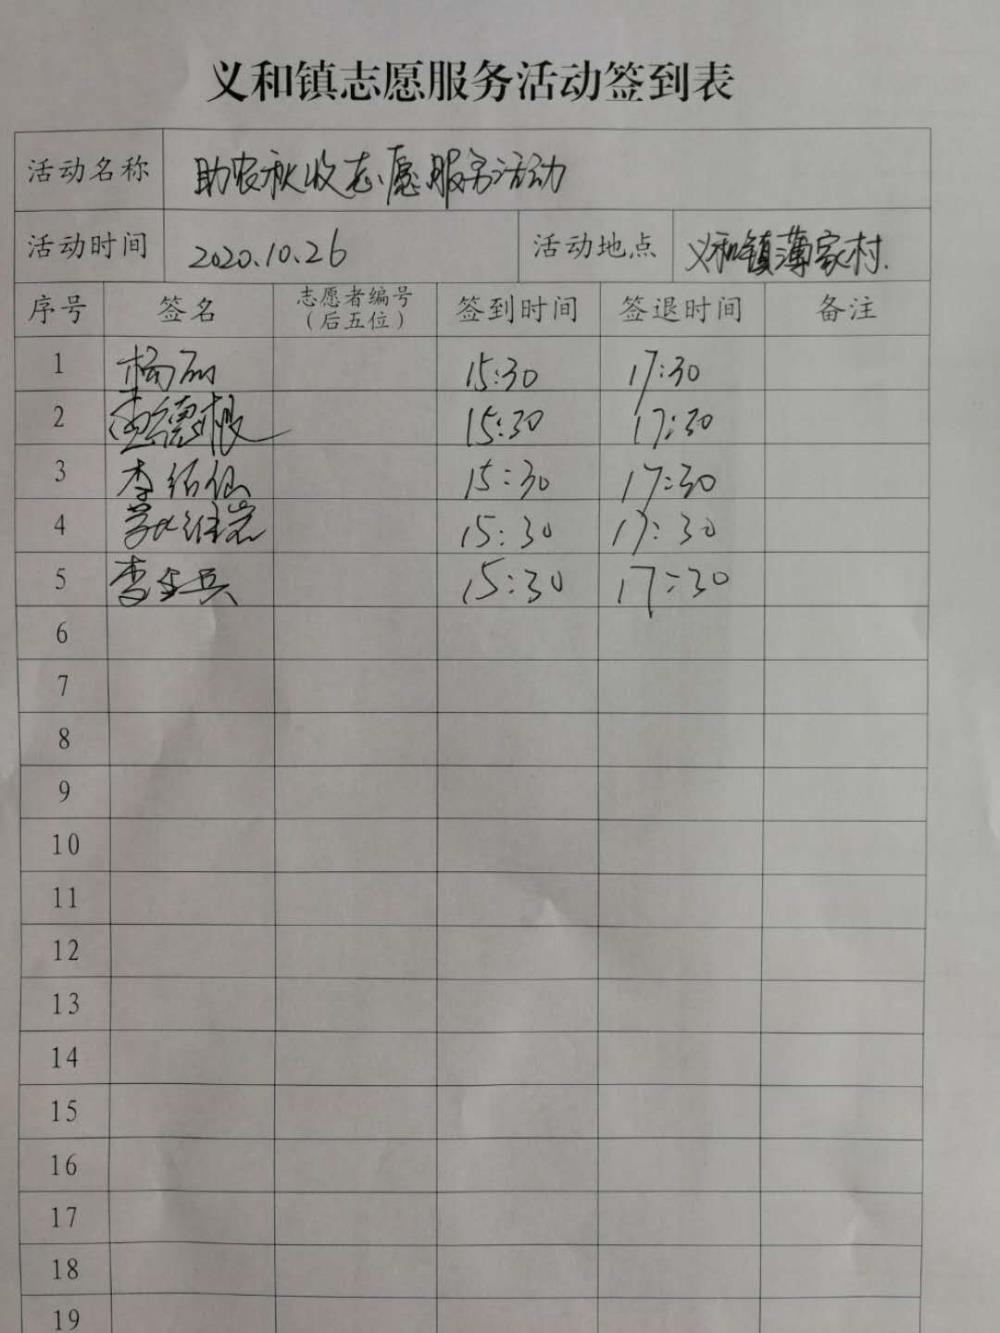 义和镇志愿服务活动签到表
活动名称 助农秋收志愿服务活动
活动时间 2020.10.26 活动地点 义和镇薄家村.
序号 签名 志愿者编号（后五位） 签到时间 签退时间 备注
1 杨丽 15:30 17:30
2 德根 15:30 17:30
3 李绍仙 15:30 17:30
4 维岩 15:30 17:30
5 李兵 15:30 17:30
6
7
8
9
10
11
12
13
14
15
16
17
18
19